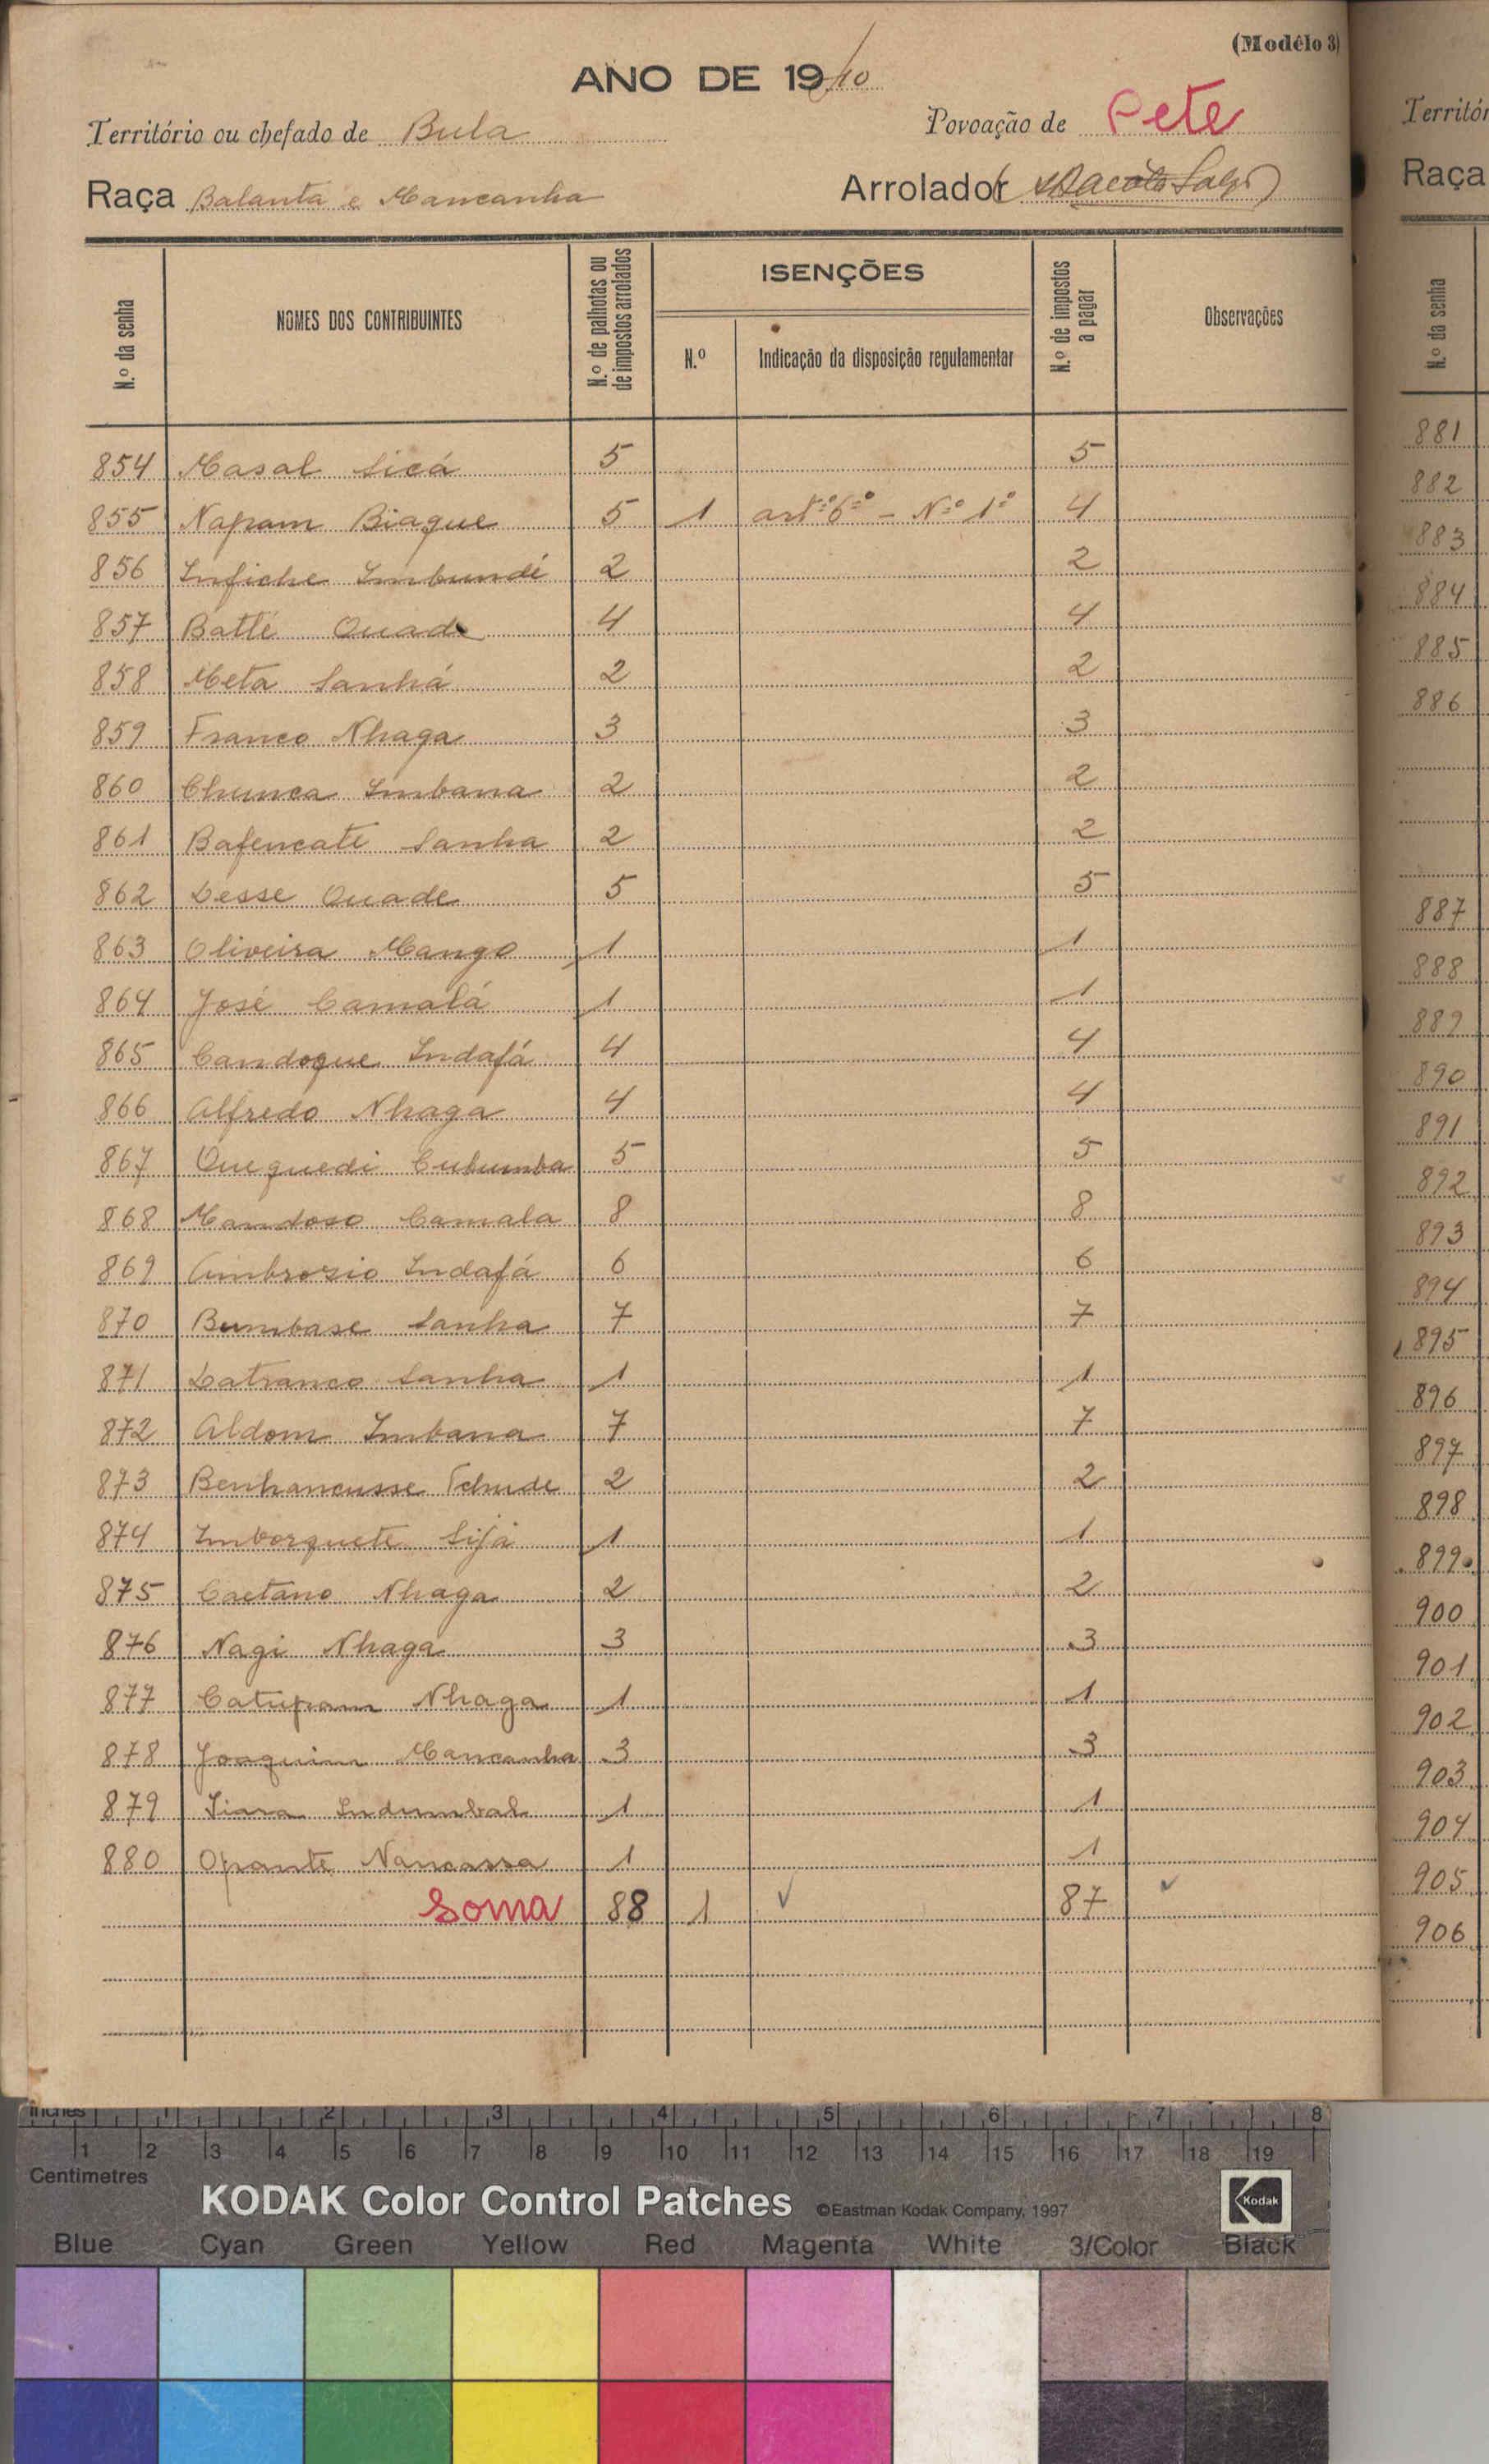 (Modêlo 3)
ANO DE 1940
Território ou chefado de Bula
Povoação de Pete
Raça Balanta e Mancanha
Arrolador
N.º da senha
NOMES DOS CONTRIBUINTES
N.º de palhotas ou de impostos arrolados
ISENÇÕES
N.º
Indicação da disposição regulamentar
N.º de impostos a pagar
Observações
854 Masal Sicá 5 5
855 Napam Biague 5 1 artº 6º - Nº 1º 4
856 Infiche Imbundé 2 2
857 Batté Quade 4 4
858 Meta Sanhá 2 2
859 Franco Nhaga 3 3
860 Chunca Imbana 2 2
861 Bafencate Sanha 2 2
862 Desse Quade 5 5
863 Oliveira Mango 1 1
864 José Camalá 1 1
865 Candoque Indafá 4 4
866 Alfredo Nhaga 4 4
867 Queguedi Cubumba 5 5
868 Mandoso Camala 8 8
869 Ambrozio Indafá 6 6
870 Bumbase Sanha 7 7
871 Datranco Sanha 1 1
872 Aldom Imbana 7 7
873 Benhancusse Tchude 2 2
874 Imborquete Sijá 1 1
875 Caetano Nhaga 2 2
876 Nagi Nhaga 3 3
877 Catupam Nhaga 1 1
878 Joaquim Mancanha 3 3
879 Siara Indumbal 1 1
880 Opante Nancassa 1 1
Soma 88 1 87
Territór
Raça
N.º da senha
881
882
883
884
885
886
887
888
889
890
891
892
893
894
895
896
897
898
899
900
901
902
903
904
905
906
inches 1 2 3 4 5 6 7 8
1 2 3 4 5 6 7 8 9 10 11 12 13 14 15 16 17 18 19
Centimetres
KODAK Color Control Patches ©Eastman Kodak Company, 1997 Kodak
Blue Cyan Green Yellow Red Magenta White 3/Color Black